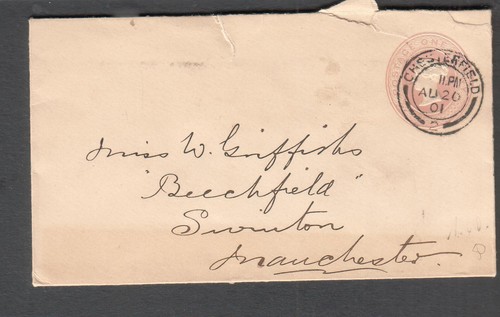 POSTAGE ONE
CHESTERFIELD
11 PM
AU 26
01
2
Miss W. Griffiths
"Beechfield"
Swinton
Manchester.